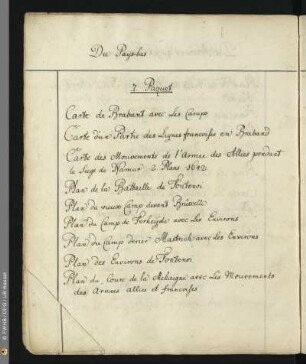 Du Pays-bas
7 Paquet
Carte de Brabant avec les Camps
Carte d'un Partie des Lignes francoises en Braband
Carte des Mouvements de l'Armée des Allies pendant
le Siege de Namur 3 Plans
Plan de la Battaille de Fontenoi
Plan du vieux Camp devant Bruxelle
Plan du Camp de avec les Environs
Plan du Camp Mastrich avec les Environs
Plan des Environs de Fontenoi
Plan du Cours de la Mehaigne avec les Mouvements
des Armées allies et francoises